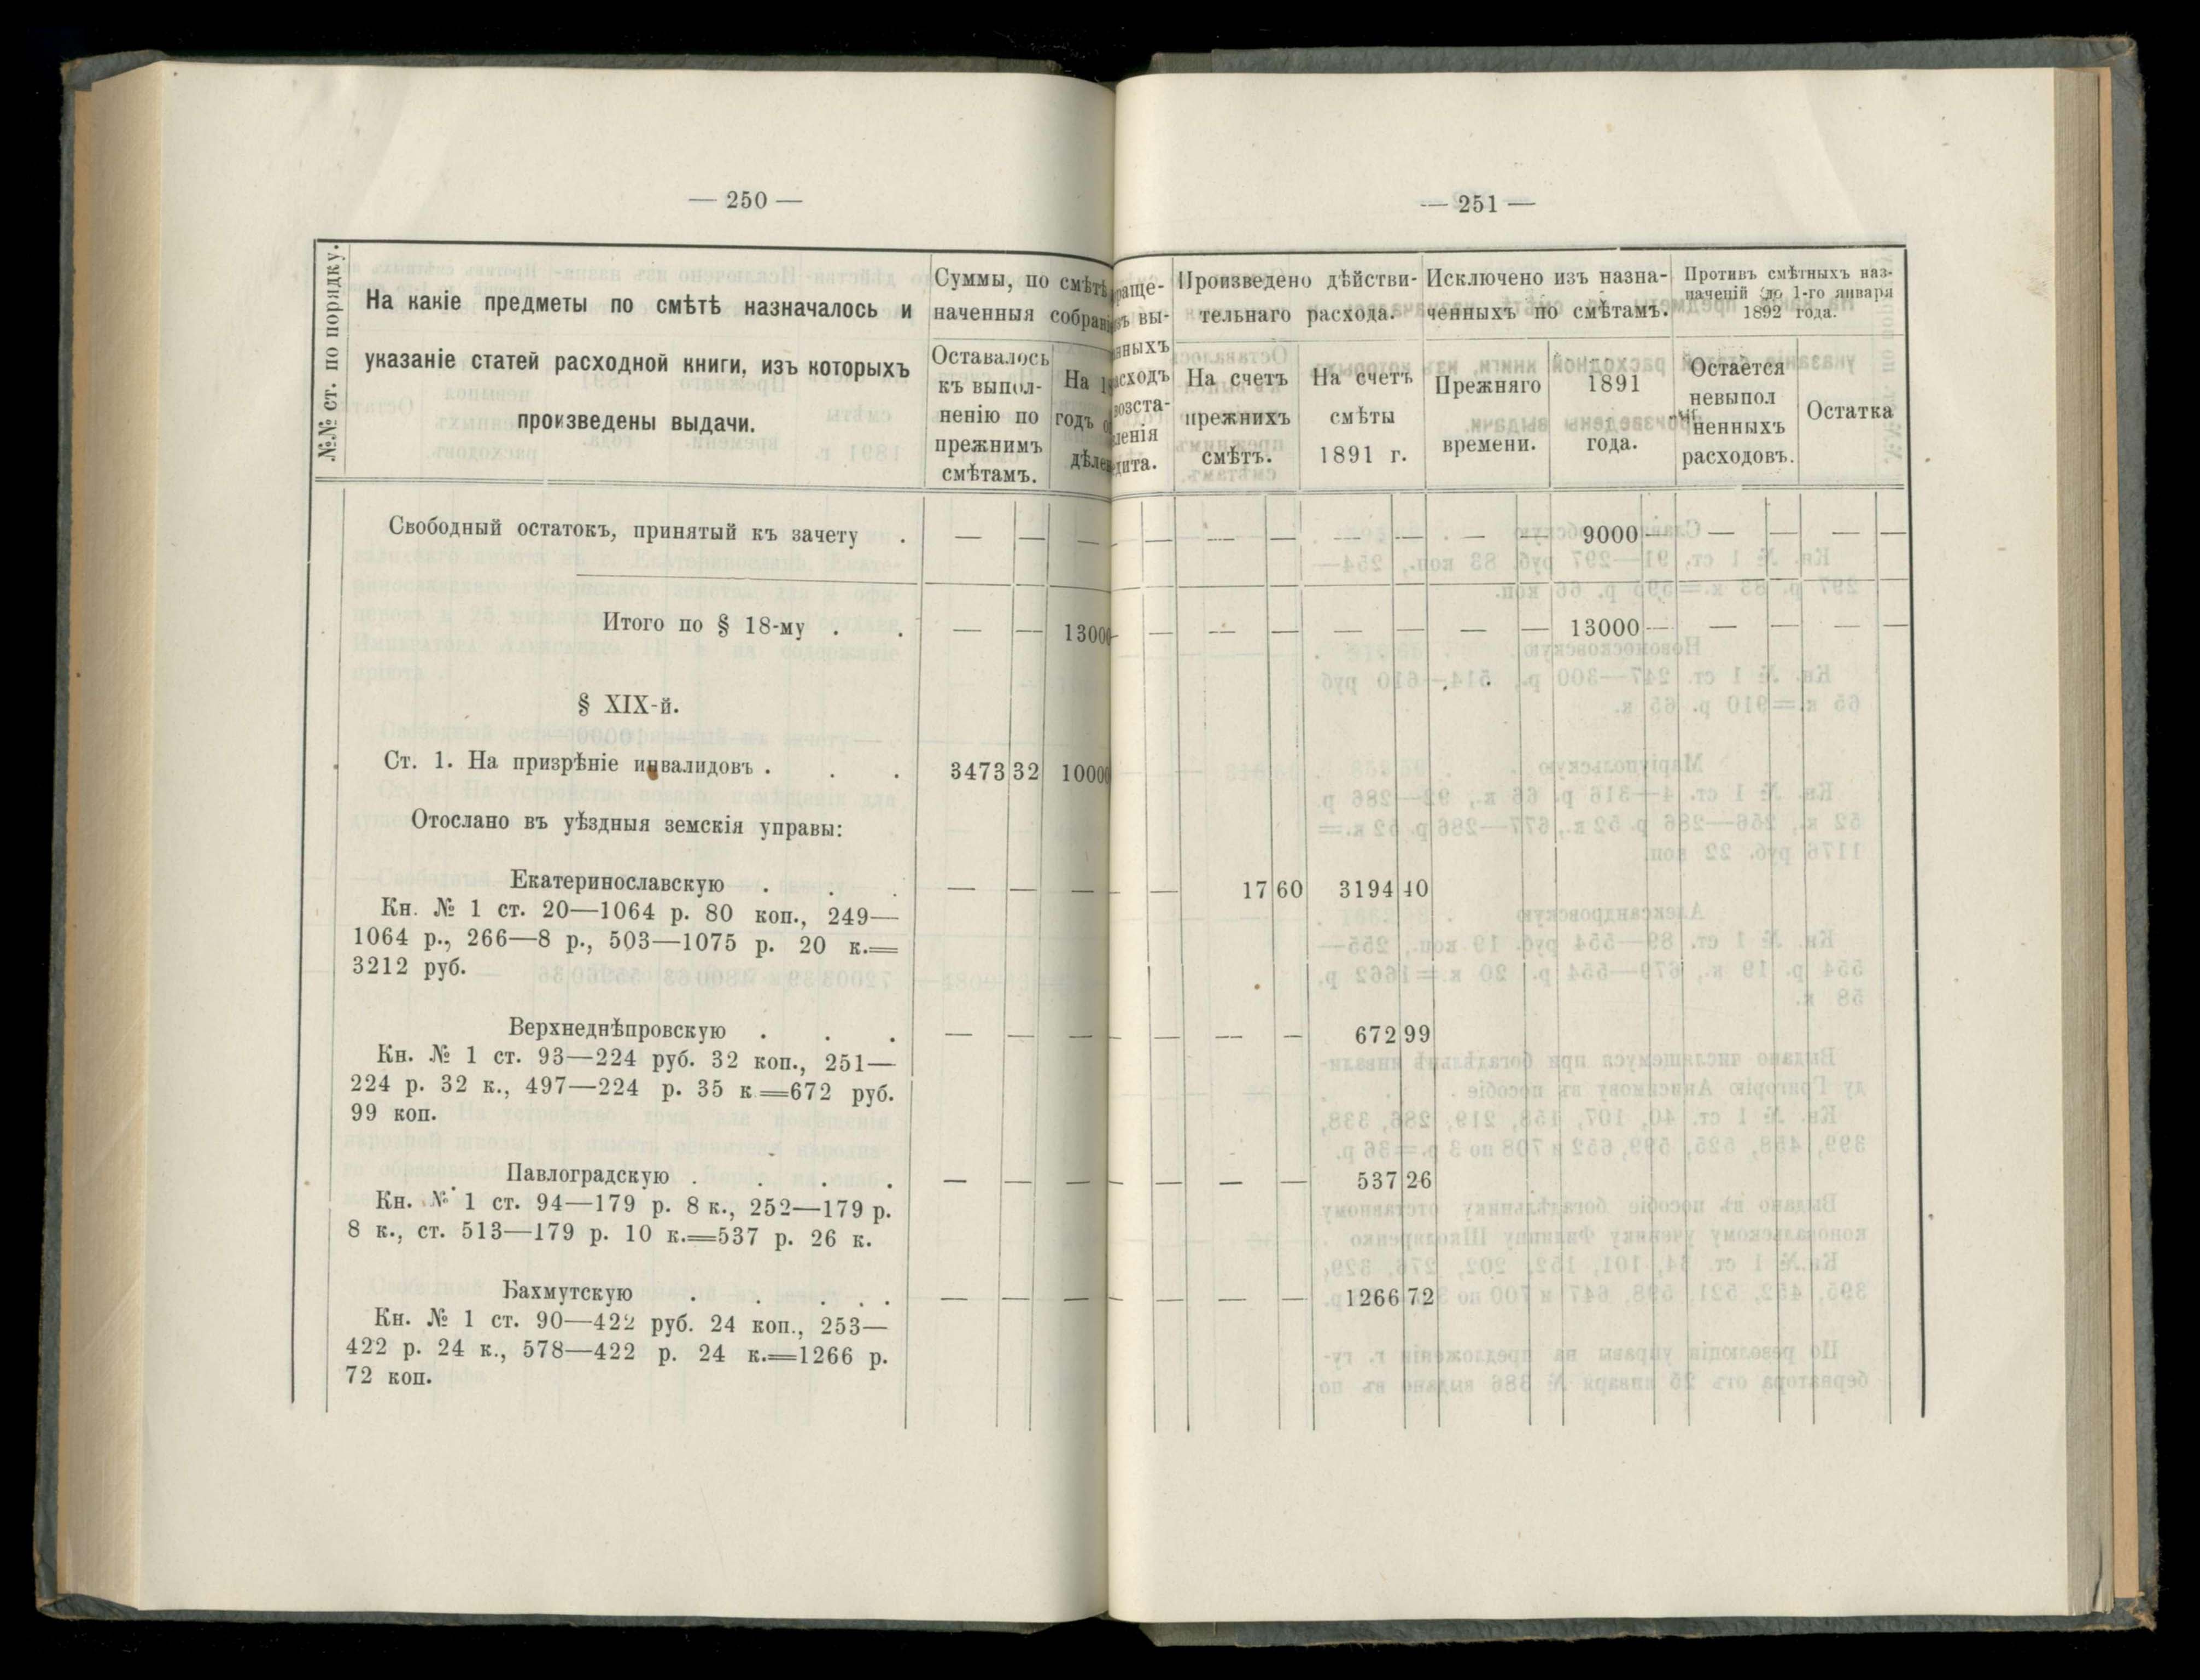 — 250 —
№№ ст. по порядку.
На какіе предметы по смѣтѣ назначалось и
указаніе статей расходной книги, изъ которыхъ
произведены выдачи.
Суммы, по смѣтѣ
наченныя собрані
Оставалось
къ выпол-
ненію по
прежнимъ
смѣтамъ.
На 1
годъ
дѣле
Свободный остатокъ, принятый къ зачету . — — —
Итого по § 18-му . . — — 13000
§ XIX-й.
Ст. 1. На призрѣніе инвалидовъ . . . 3473 32 10000
Отослано въ уѣздныя земскія управы:
Екатеринославскую . . . — — —
Кн. № 1 ст. 20—1064 р. 80 коп., 249—
1064 р., 266—8 р., 503—1075 р. 20 к.=
3212 руб.
Верхнеднѣпровскую . . . — — —
Кн. № 1 ст. 93—224 руб. 32 коп., 251—
224 р. 32 к., 497—224 р. 35 к.=672 руб.
99 коп.
Павлоградскую . . . . — — —
Кн. № 1 ст. 94—179 р. 8 к., 252—179 р.
8 к., ст. 513—179 р. 10 к.=537 р. 26 к.
Бахмутскую . . . . . — — —
Кн. № 1 ст. 90—422 руб. 24 коп., 253—
422 р. 24 к., 578—422 р. 24 к.=1266 р.
72 коп.
— 251 —
раще-
ъ вы-
нныхъ
асходъ
озста-
ленія
дита.
Произведено дѣйстви-
тельнаго расхода.
На счетъ
прежнихъ
смѣтъ.
На счетъ
смѣты
1891 г.
Исключено изъ назна-
ченныхъ по смѣтамъ.
Прежняго
времени.
1891
года.
Противъ смѣтныхъ наз-
наченій до 1-го января
1892 года.
Остается
невыпол
ненныхъ
расходовъ.
Остатка
— — — — — — — — 9000 — — — — —
— — — — — — — — 13000 — — — — —
— — 17 60 3194 40
— — — — 672 99
— — — — 537 26
— — — — 1266 72